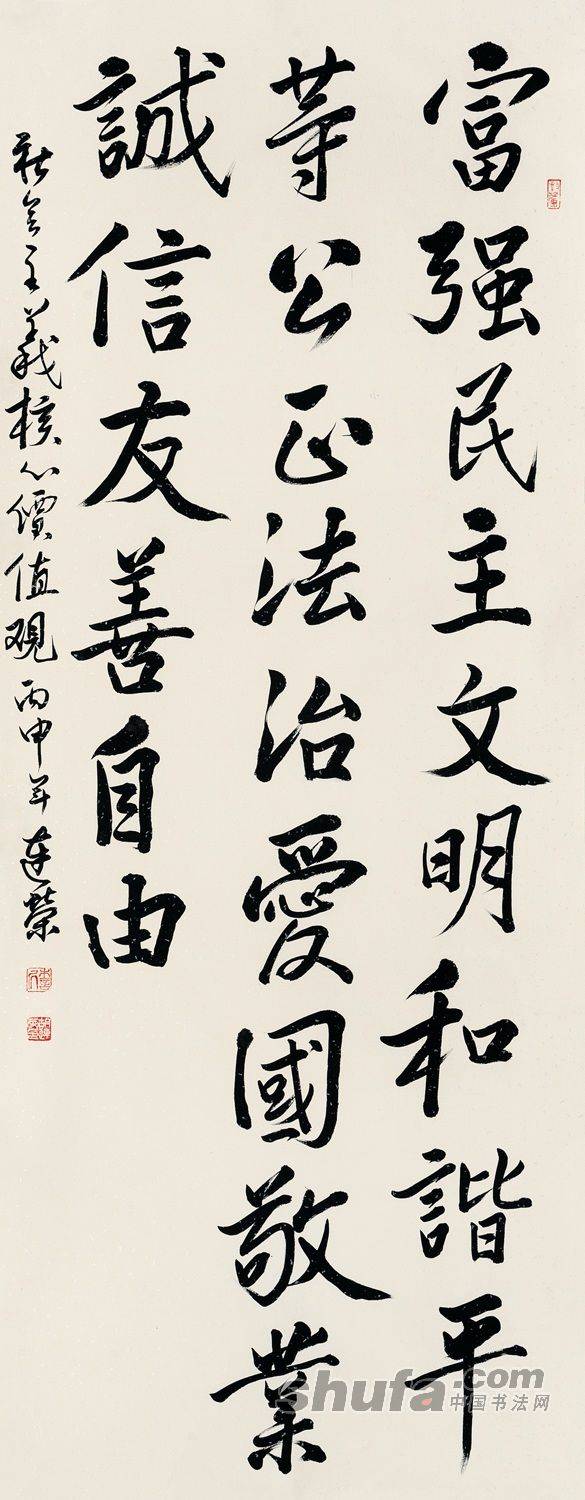 富强民主文明和諧平
等公正法治愛國敬業
誠信友善自由
社會主義核心價值观丙申年連榮
shufa.com
中国书法网